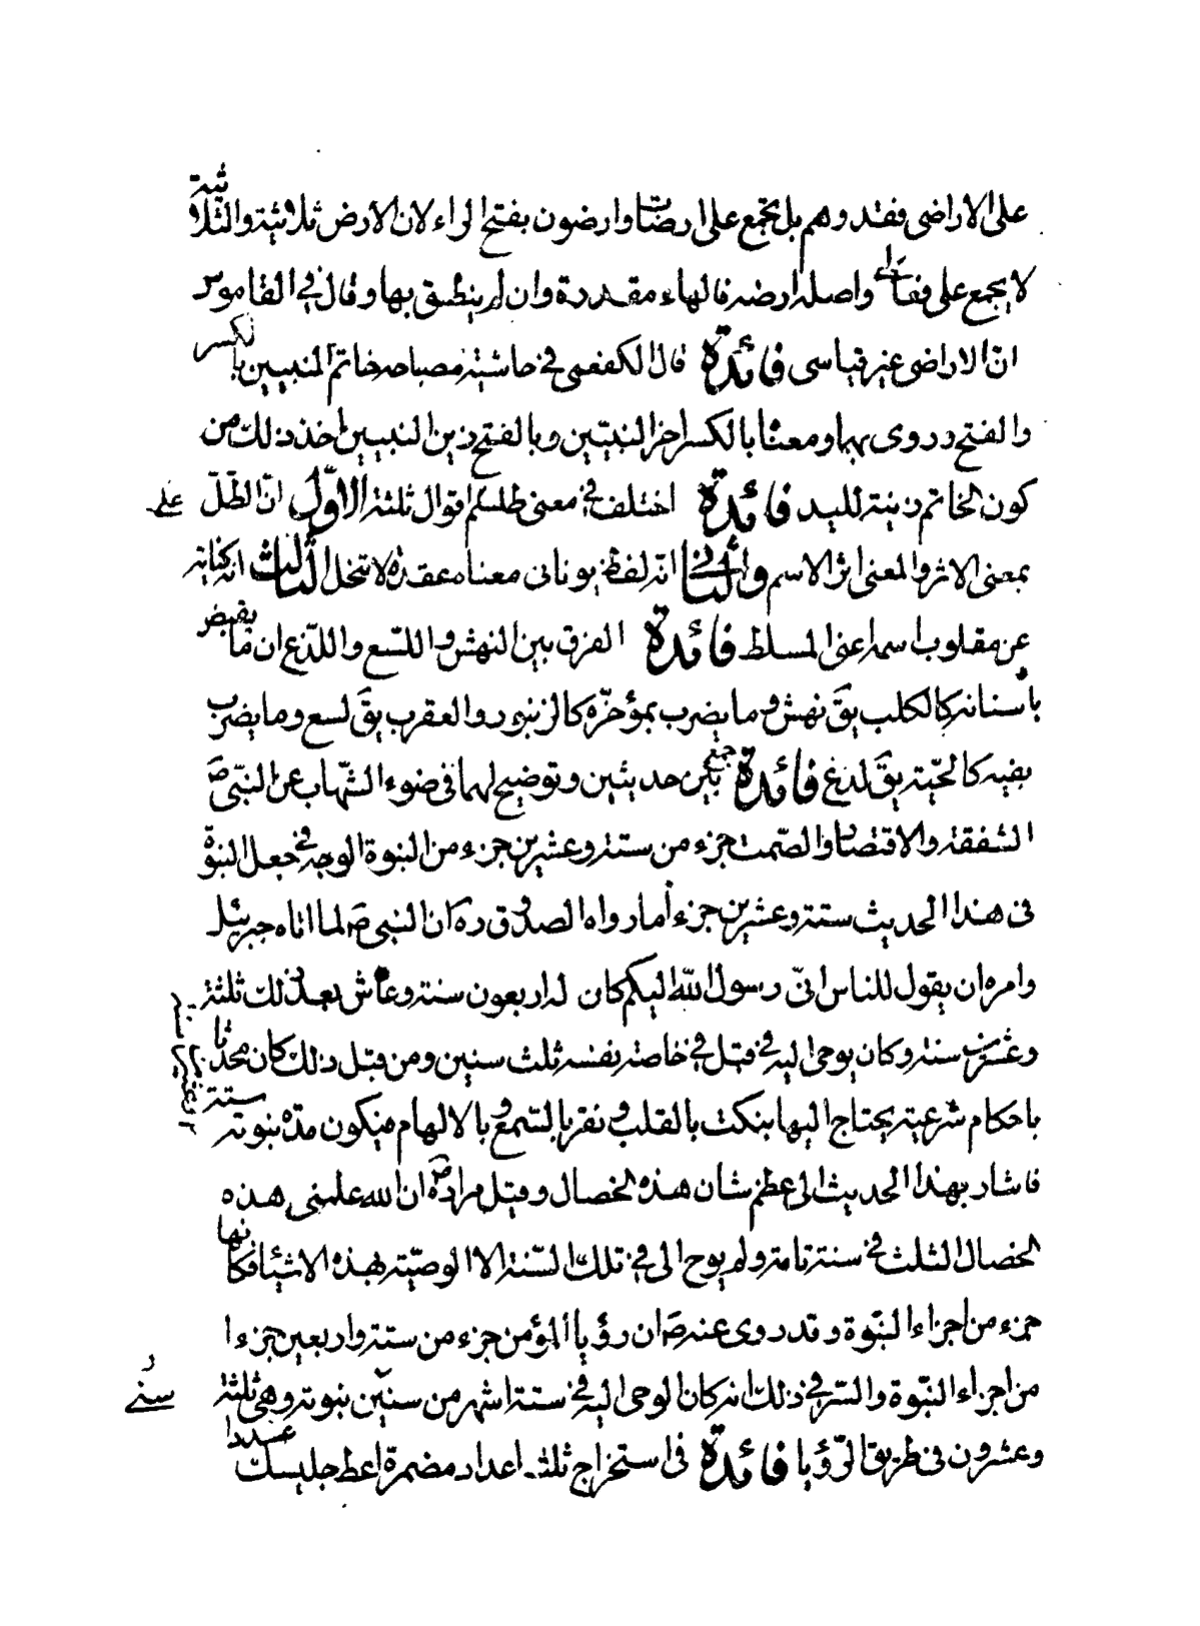 على الاراضى فقد وهم بل يجمع على ارضات وارضون بفتح الراء لان الارض ثلاثية والثلاثية
لا يجمع على فعالى واصله ارضه فالهاء مقدرة وان لم ينطق بها وقال فى القاموس
ان الاراضى غير قياسى فائدة قال الكفعمى فى حاشية مصباحه خاتم النبيين بالكسر
والفتح وروى بهما ومعناه بالكسر اخر النبيّين وبالفتح زين النبيين اخذ ذلك من
كون الخاتم زينة لليد فائدة اختلف فى معنى طلسم اقوال ثلثة الاوّل انّ الطّلّ
بمعنى الاثر والمعنى اثر الاسم والثانى انه لفظ يونانى معناه عقدة لا تنحل الثالث انه كناية
عن مقلوب اسمه اعنى المسلط فائدة الفرق بين النهش واللسع واللدغ ان ما يقبض
باسنانه كالكلب يق نهش وما يضرب بمؤخّره كالزنبور والعقرب يق لسع وما يضرب
بفيه كالحيّة يق لدغ فائدة جمع بين حديثين وتوضيح لهما فى ضوء الشّهاب عن النبّى ص
الشفقة والاقتصاد والصّمت جزء من ستة وعشرين جزء من النبوة الوجه فى جعل النبوّة
فى هذا الحديث ستة وعشرين جزء أما رواه الصدوق ره ان النبى ص لما اتاه جبرئيل
وامره ان يقول للناس انّى رسول الله اليكم كان له اربعون سنة وعاش بعد ذلك ثلثة
وعشرين سنة وكان يوحى اليه فى قبل فى خاصة نفسه ثلث سنين ومن قبل ذلك كان محدثا
باحكام شرعية يحتاج اليها بنكت بالقلب ونقر بالسّمع وبالالهام فيكون مدّة نبوته ستة
فاشار بهذا الحديث الى عظم شان هذه الخصال وقيل مراده ص ان الله علمنى هذه
الخصال الثلث فى سنة تامة ولم يوح الى فى تلك السّنة الا الوصيّة بهذه الاشياء فكانها
جزء من اجزاء النبّوة وقد روى عنه ص ان رؤيا المؤمن جزء من ستة واربعين جزءا
من اجزاء النبّوة والسّر فى ذلك انه كان الوحى اليه فى ستة اشهر من سنّين نبوته وهى ثلثة
وعشرون فى طريق الرّؤيا فائدة فى استخراج ثلثة اعداد مضمرة اعط جليسك عددا